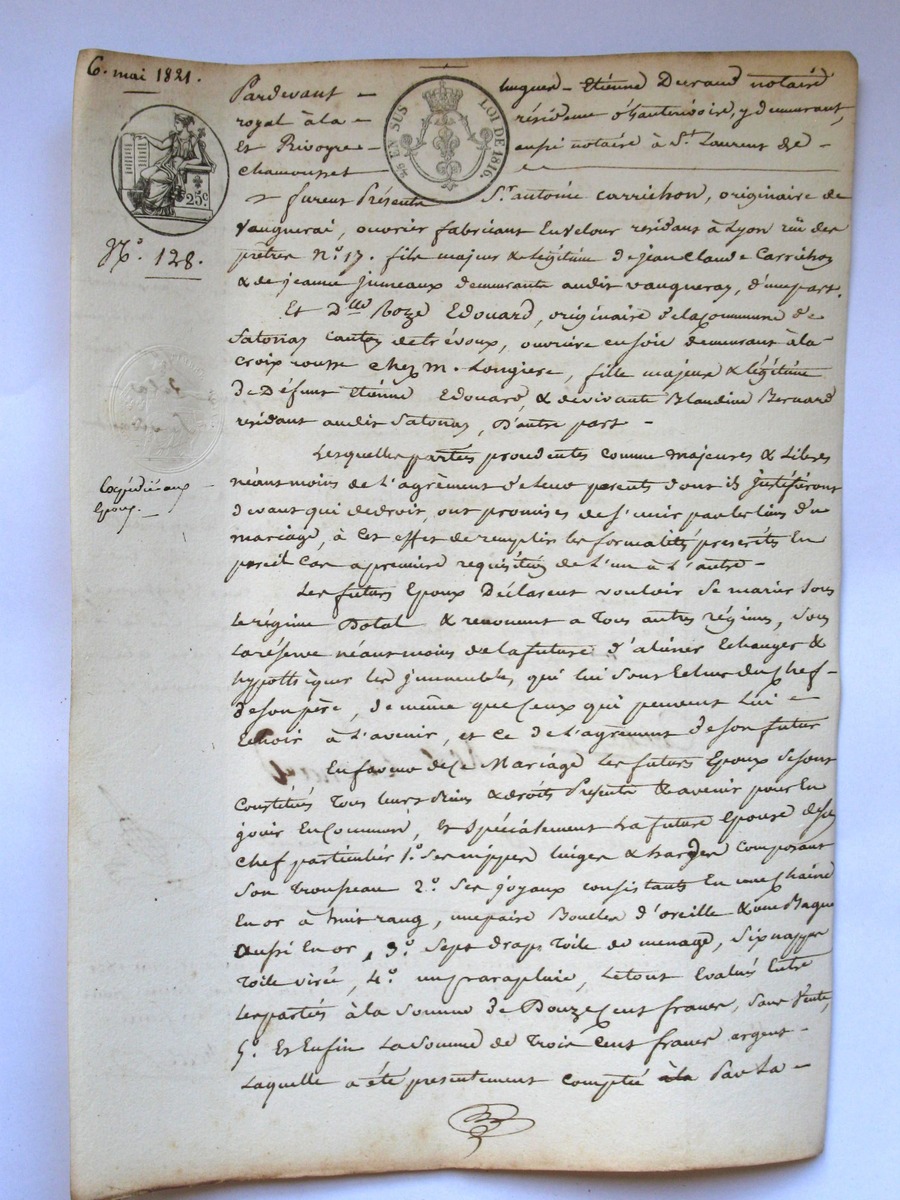 6. mai 1821.
Pardevant hugues Etienne Durand notaire
royal à la résidence d'hauterivoire, y demeurant,
Et Rivoyre aussi notaire à St. Laurent de
chamousset
25c
45 EN SUS LOI DE 1816.
furent Présents Sr. antoine carrichon, originaire de
N.o 128.
Vaugnerai, ouvrier fabricant En velour residant à Lyon rüe des
prêtres N.o 17. fils majeur & légitime de jean Claude Carrichon
& de jeanne Jumeaux demeurants audit vaugneray, d'une part.
Et Dlle Roze Edouard, originaire de la commune de
Satonay canton de trévoux, ouvrière en soie demeurant à la
croix rousse chez m. Longiere, fille majeure & légitime
de Défunt Etienne Edouard, & de vivante Blandine Bernard
residant audit Satonay, D'autre part
Lesquelles parties procédentes comme majeures & Libres
néantmoins de l'agrément de leurs parents dont ils justifieront
devant qui de droit, ont promises de s'unir par les liens du
mariage, à cet effet de remplir les formalités prescrites En
pareil cas a premiere requisition de l'un à l'autre
Expédié aux
Epoux.
Les futurs Epoux Déclarent vouloir se marier sous
le régime Dotal & renoncent a Tous autres régimes, sous
la réserve néantmoins de la future d'aliéner Echanger &
hypothéquer les jmmeubles, qui lui sont Echus du chef
de son père, de même que ceux qui peuvent Lui
Echoir à L'avenir, et ce de l'agrément de son futur
En faveur de Ce Mariage Les futurs Epoux se sont
Constitués Tous leurs biens & droits Présents & avenir pour En
jouir En Commun, Et spécialement La future Epouse de son
chef particulier 1.o ses nippes linges & hardes composant
son Trousseau 2.o ses joyaux consistants En une chaine
En or à huit rang, une paire Boucles d'oreille & une Bague
aussi En or, 3.o sept draps Toile de menage, six nappes
Toile virée, 4.o un parapluie, Le tout Evalué Entre
Les parties à la somme de Douze Cent francs, sans Vente,
5.o Et Enfin La somme de Trois Cent francs argent
Laquelle a été presentement comptée à la Par La